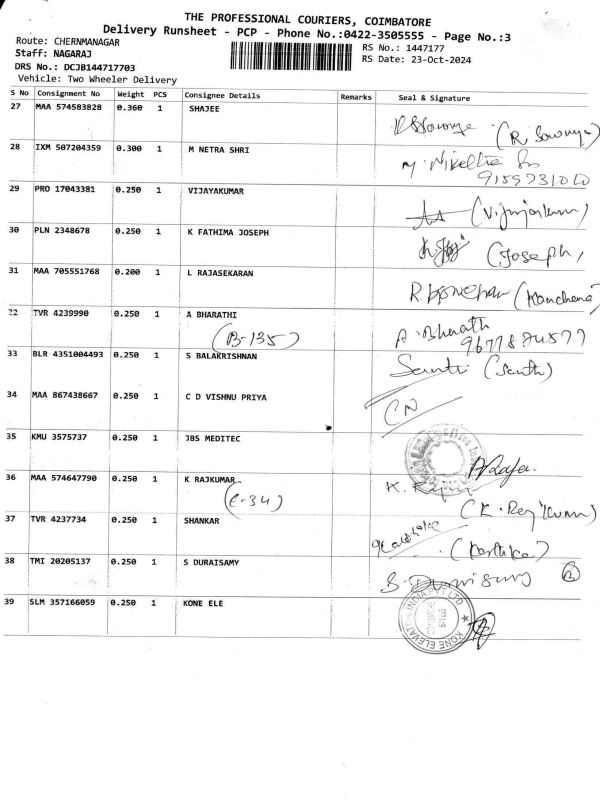 THE PROFESSIONAL COURIERS, COIMBATORE
Delivery Runsheet - PCP - Phone No.:0422-3505555 - Page No.:3
Route: CHERNMANAGAR RS No.: 1447177
Staff: NAGARAJ RS Date: 23-Oct-2024
DRS No.: DCJB144717703
Vehicle: Two Wheeler Delivery
S No Consignment No Weight PCS Consignee Details Remarks Seal & Signature
27 MAA 574583828 0.360 1 SHAJEE
(R. Sowmya)
28 IXM 507204359 0.300 1 M NETRA SHRI
29 PRO 17043381 0.250 1 VIJAYAKUMAR
(Vijayakumar)
30 PLN 2348678 0.250 1 K FATHIMA JOSEPH
(Joseph)
31 MAA 705551768 0.200 1 L RAJASEKARAN
(Kanchana)
TVR 4239990 0.250 1 A BHARATHI A. Bharath
(B-135) 9677874577
33 BLR 4351004493 0.250 1 S BALAKRISHNAN
34 MAA 867438667 0.250 1 C D VISHNU PRIYA
CN
35 KMU 3575737 0.250 1 JBS MEDITEC
36 MAA 574647790 0.250 1 K RAJKUMAR K. Raju
(E-34) (K. Rajkumar)
37 TVR 4237734 0.250 1 SHANKAR
(Karthika)
38 TMI 20205137 0.250 1 S DURAISAMY
39 SLM 357166059 0.250 1 KONE ELE
KONE ELEVATOR INDIA PVT LTD